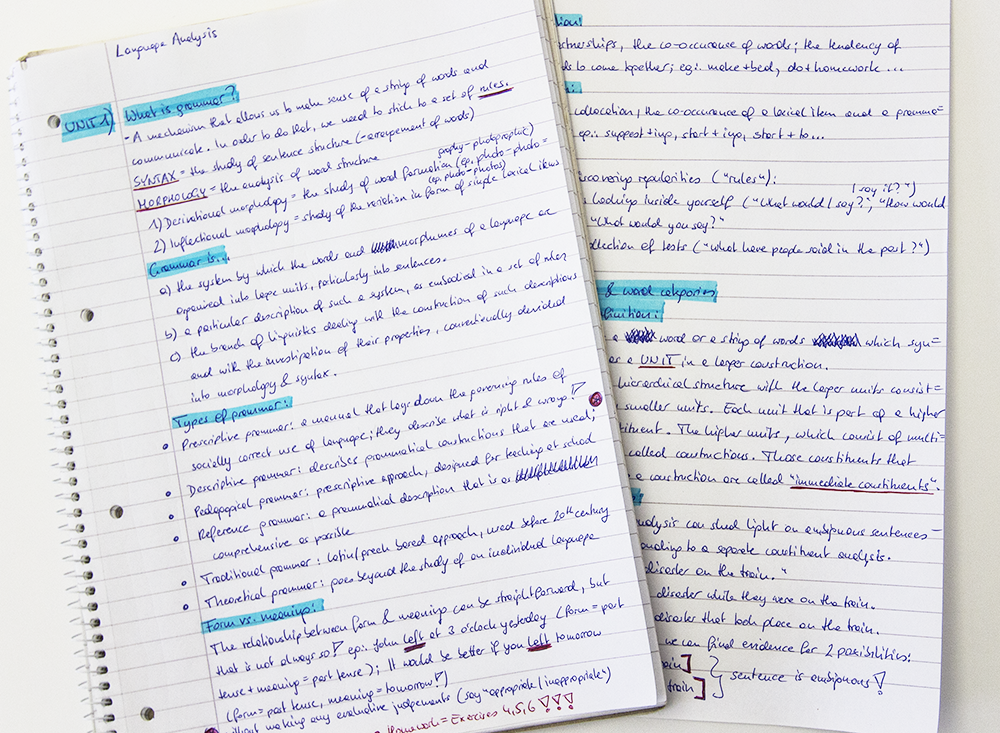 Language Analysis
UNIT 1)
What is grammar?
- A mechanism that allows us to make sense of a string of words and
communicate. In order to do that, we need to stick to a set of rules.
SYNTAX = the study of sentence structure (-arrangement of words)
MORPHOLOGY = the analysis of word structure
graphy - photographic)
1) Derivational morphology = the study of word formation (eg. photo - photo =
(eg. photo-photos)
2) Inflectional morphology = study of the variation in form of single lexical items
Grammar is...
a) the system by which the words and morphemes of a language are
organized into large units, particularly into sentences.
b) a particular description of such a system, as embodied in a set of rules
c) the branch of linguistics dealing with the construction of such descriptions
and with the investigation of their properties, conventionally divided
into morphology & syntax.
Types of grammar:
Prescriptive grammar: a manual that lays down the governing rules of
socially correct use of language; they describe what is right & wrong!
Descriptive grammar: describes grammatical constructions that are used;
Pedagogical grammar: prescriptive approach, designed for teaching at school
Reference grammar: a grammatical description that is as
comprehensive as possible
Traditional grammar: latin/greek based approach, used before 20th century
Theoretical grammar: goes beyond the study of an individual language
Form vs. meaning:
The relationship between form & meaning can be straightforward, but
that is not always so! eg: John left at 3 o'clock yesterday (form = past
tense + meaning = past tense); It would be better if you left tomorrow
(form = past tense, meaning = tomorrow!)
without making any evaluative judgements (say "appropriate / inappropriate")
Homework = Exercises 4, 5, 6 !!!
tion:
rtnerships, the co-occurance of words; the tendency of
ds to come together; eg: make + bed, do + homework ...
:
collocation, the co-occurance of a lexical item and a gramma=
eg: suggest + ing, start + ing, start + to...
scovering regularities ("rules"):
I say it?")
Looking inside yourself ("What would I say?", "How would
"What would you say?"
ollection of texts ("What have people said in the past?")
& word categories
finition:
a word or a string of words which syn=
as a UNIT in a larger construction.
hierarchical structure with the larger units consist=
smaller units. Each unit that is part of a higher
stituent. The higher units, which consist of multi=
called constructions. Those constituents that
a construction are called "immediate constituents".
:
nalysis can shed light on ambiguous sentences -
onding to a separate constituent analysis.
disaster on the train."
disaster while they were on the train.
disaster that took place on the train.
we can find evidence for 2 possibilities:
train]
train] sentence is ambiguous!